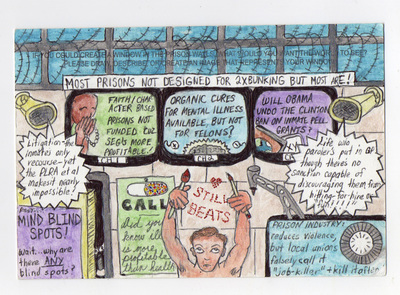 IF YOU COULD CREATE A WINDOW IN THE PRISON WALLS WHAT WOULD YOU WANT THE WORLD TO SEE?
PLEASE DRAW, DESCRIBE, OR CREATE AN IMAGE THAT REPRESENTS YOUR WINDOW
MOST PRISONS NOT DESIGNED FOR 2XBUNKING BUT MOST ARE!
FAITH/CHAR-
ACTER BASED
PRISONS NOT
FUNDED CUZ
SEGS MORE
PROFITABLE!
CH.1
ORGANIC CURES
FOR MENTAL ILLNESS
AVAILABLE, BUT NOT
FOR FELONS?
CH.2
WILL OBAMA
UNDO THE CLINTON
BAN ON INMATE PELL
GRANTS?
Litigation the
inmates only
recourse-yet
the PLRA et al
makes it nearly
impossible!
Life w/o
parolers part in ap
though there's no
sanction capable of
discouraging them from
hitting for hire
MIND BLIND
SPOTS!
Wait...why are
there ANY
blind spots?
CALL
Did you
know ill
is more
profitable
than health
STILL
BEATS
PRISON INDUSTRY:
reduces violence,
but local unions
falsely call it
"Job-killer" + kill it after